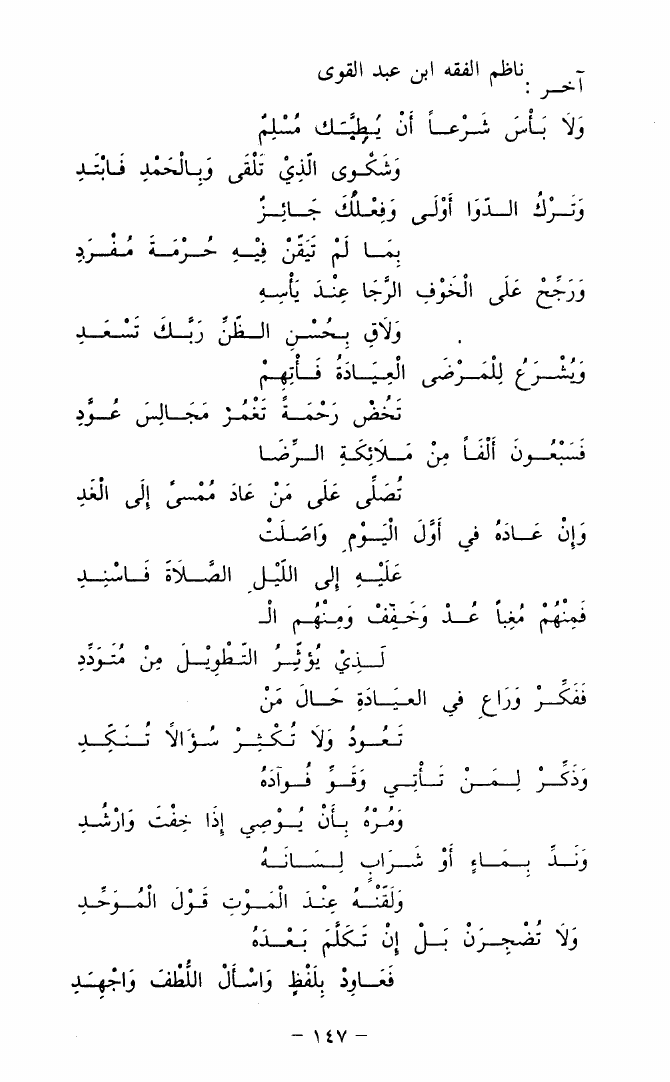 آخـر : ناظم الفقه ابن عبد القوى
وَلَا بَـأْسَ شَـرْعـاً أَنْ يُـطِبَّـكَ مُسْلِمٌ
وَشَكْـوى الَّذِيْ تَلْقَى وَبِـالْحَمْدِ فَـابْتَـدِ
وَتَـرْكُ الـدَّوَا أَوْلَـى وَفِعْلُكَ جَـائِـزٌ
بِمَـا لَمْ تَيَقَّنْ فِيْـهِ حُـرْمَـةَ مُفْـرَدِ
وَرَجِّحْ عَلَى الْخَوْفِ الرَّجَا عِنْدَ يَأْسِـهِ
وَلَاقِ بِـحُسْـنِ الـظَّنِّ رَبَّـكَ تَسْعَـدِ
وَيُشْـرَعُ لِلْمَـرْضَى الْعِيَـادَةُ فَـأْتِهِمْ
تَخُضْ رَحْمَـةً تَغْمُرْ مَجَـالِسَ عُـوَّدِ
فَسَبْعُـونَ أَلْفـاً مِنْ مَـلَائِكَـةِ الـرِّضَـا
تُصَلِّى عَلَى مَنْ عَادَ مُمْسىً إِلَى الْغَدِ
وَإِنْ عَـادَهُ في أَوَّلَ الْيَـوْمِ وَاصَلَتْ
عَلَيْـهِ إِلى اللَّيْـلِ الصَّـلَاةَ فَـاسْنِـدِ
فَمِنْهُمْ مُغِباً عُـدْ وَخَفِّفْ وَمِنْهُـمِ الْـ
ـلَـذِيْ يُؤْثِـرُ التَّـطْوِيْـلَ مِنْ مُتَوَدِّدِ
فَفَكِّـرْ وَرَاعِ في العِيَـادَةِ حَـالَ مَنْ
تَعُـودُ وَلَا تُكْثِـرْ سُـؤَالاً تُـنَكِّـدِ
وَذَكِّـرْ لِـمَـنْ تَـأْتِـي وَقَـوِّ فُـؤَادَهُ
وَمُرْهُ بِـأَنْ يُـوْصِي إِذَا خِفْتَ وَارْشُدِ
وَنَـدِّ بِـمَـاءٍ أَوْ شَـرَابٍ لِـسَـانَـهُ
وَلَقِّنْـهُ عِنْدَ الْمَـوْتِ قَـوْلَ الْمُـوَحِّـدِ
وَلَا تُضْجِـرَنْ بَـلْ إِنْ تَكَلَّمَ بَعْـدَهُ
فَعَـاوِدْ بِلَفْظٍ وَاسْأَلْ اللُّطْفَ وَاجْهِـدِ
– ١٤٧ –